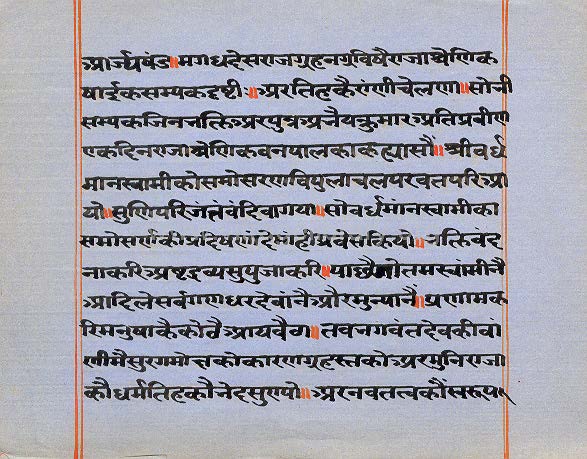 आर्ज्यषंड॥मगधदेसराजगृहनग्रविषैराजाश्रेणिक
षाईकसम्यकदृष्टी॥अरतिहकैरांणीचेलणा॥सोभी
सम्यकजिनभक्तिअरपुत्रअभैयकुमारअतिप्रवीण
एकदिनराजाश्रेणिकवनपालकाकह्यासौं॥श्रीवर्ध
मानस्वामीकोसमोसरणविपुलाचलपरवतपरिआ
यो॥सुणिपरिजंतवंदिवागया॥सोवर्धमानस्वामीका
समोसर्णकीप्रदिषणांदेमांहीप्रवेसकियो॥भक्तिवंद
नाकरिअष्टद्रव्यसुपुजाकरि॥पाछैगोतमस्वांमीनै
आदिलेसर्वगणधरदेवांनैऔरमुन्यानैं॥प्रणामक
रिमनुषाकैकोठैआयबैठा॥तबभगवंतदेवकीबां
णीमैसुरगमोक्षकोकारणगृहस्तकोअरमुनिराजा
कौधर्मतिहकौभेदसुणयो॥अरनवतत्वकौंसरूप